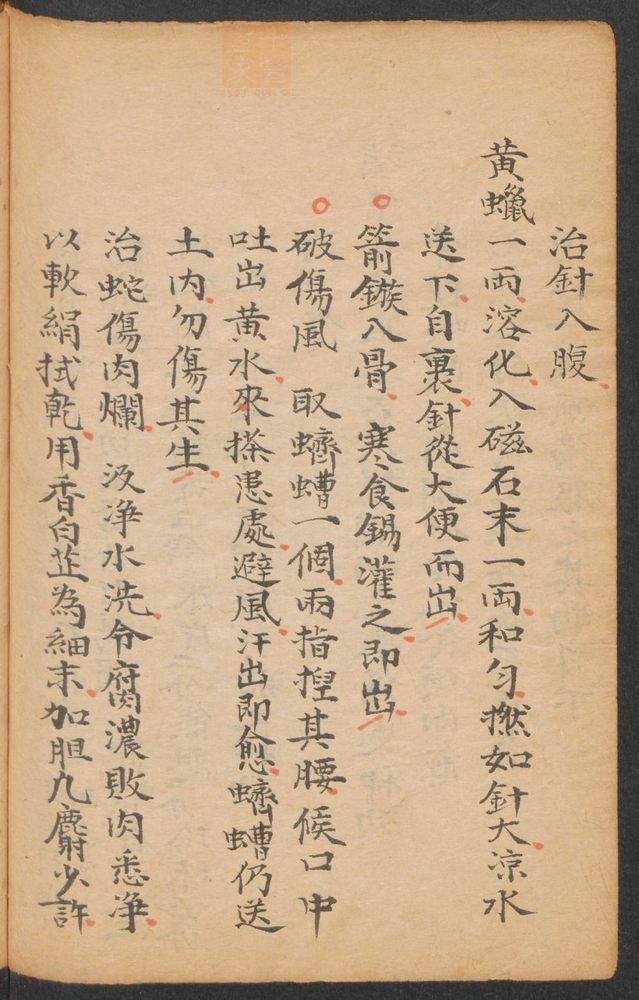 治針入腹
黄蠟一兩溶化入磁石末一兩和匀撚如針大凉水
送下自裹針從大便而出
箭鏃入骨 寒食錫灌之即出
破傷風 取蠐螬一個兩指捏其腰候口中
吐出黄水來搽患處避風汗出即愈蠐螬仍送
土内勿傷其生
治蛇傷肉爛 汲净水洗令腐濃敗肉悉净
以軟絹拭乾用香白芷為細末加胆凡麝少許